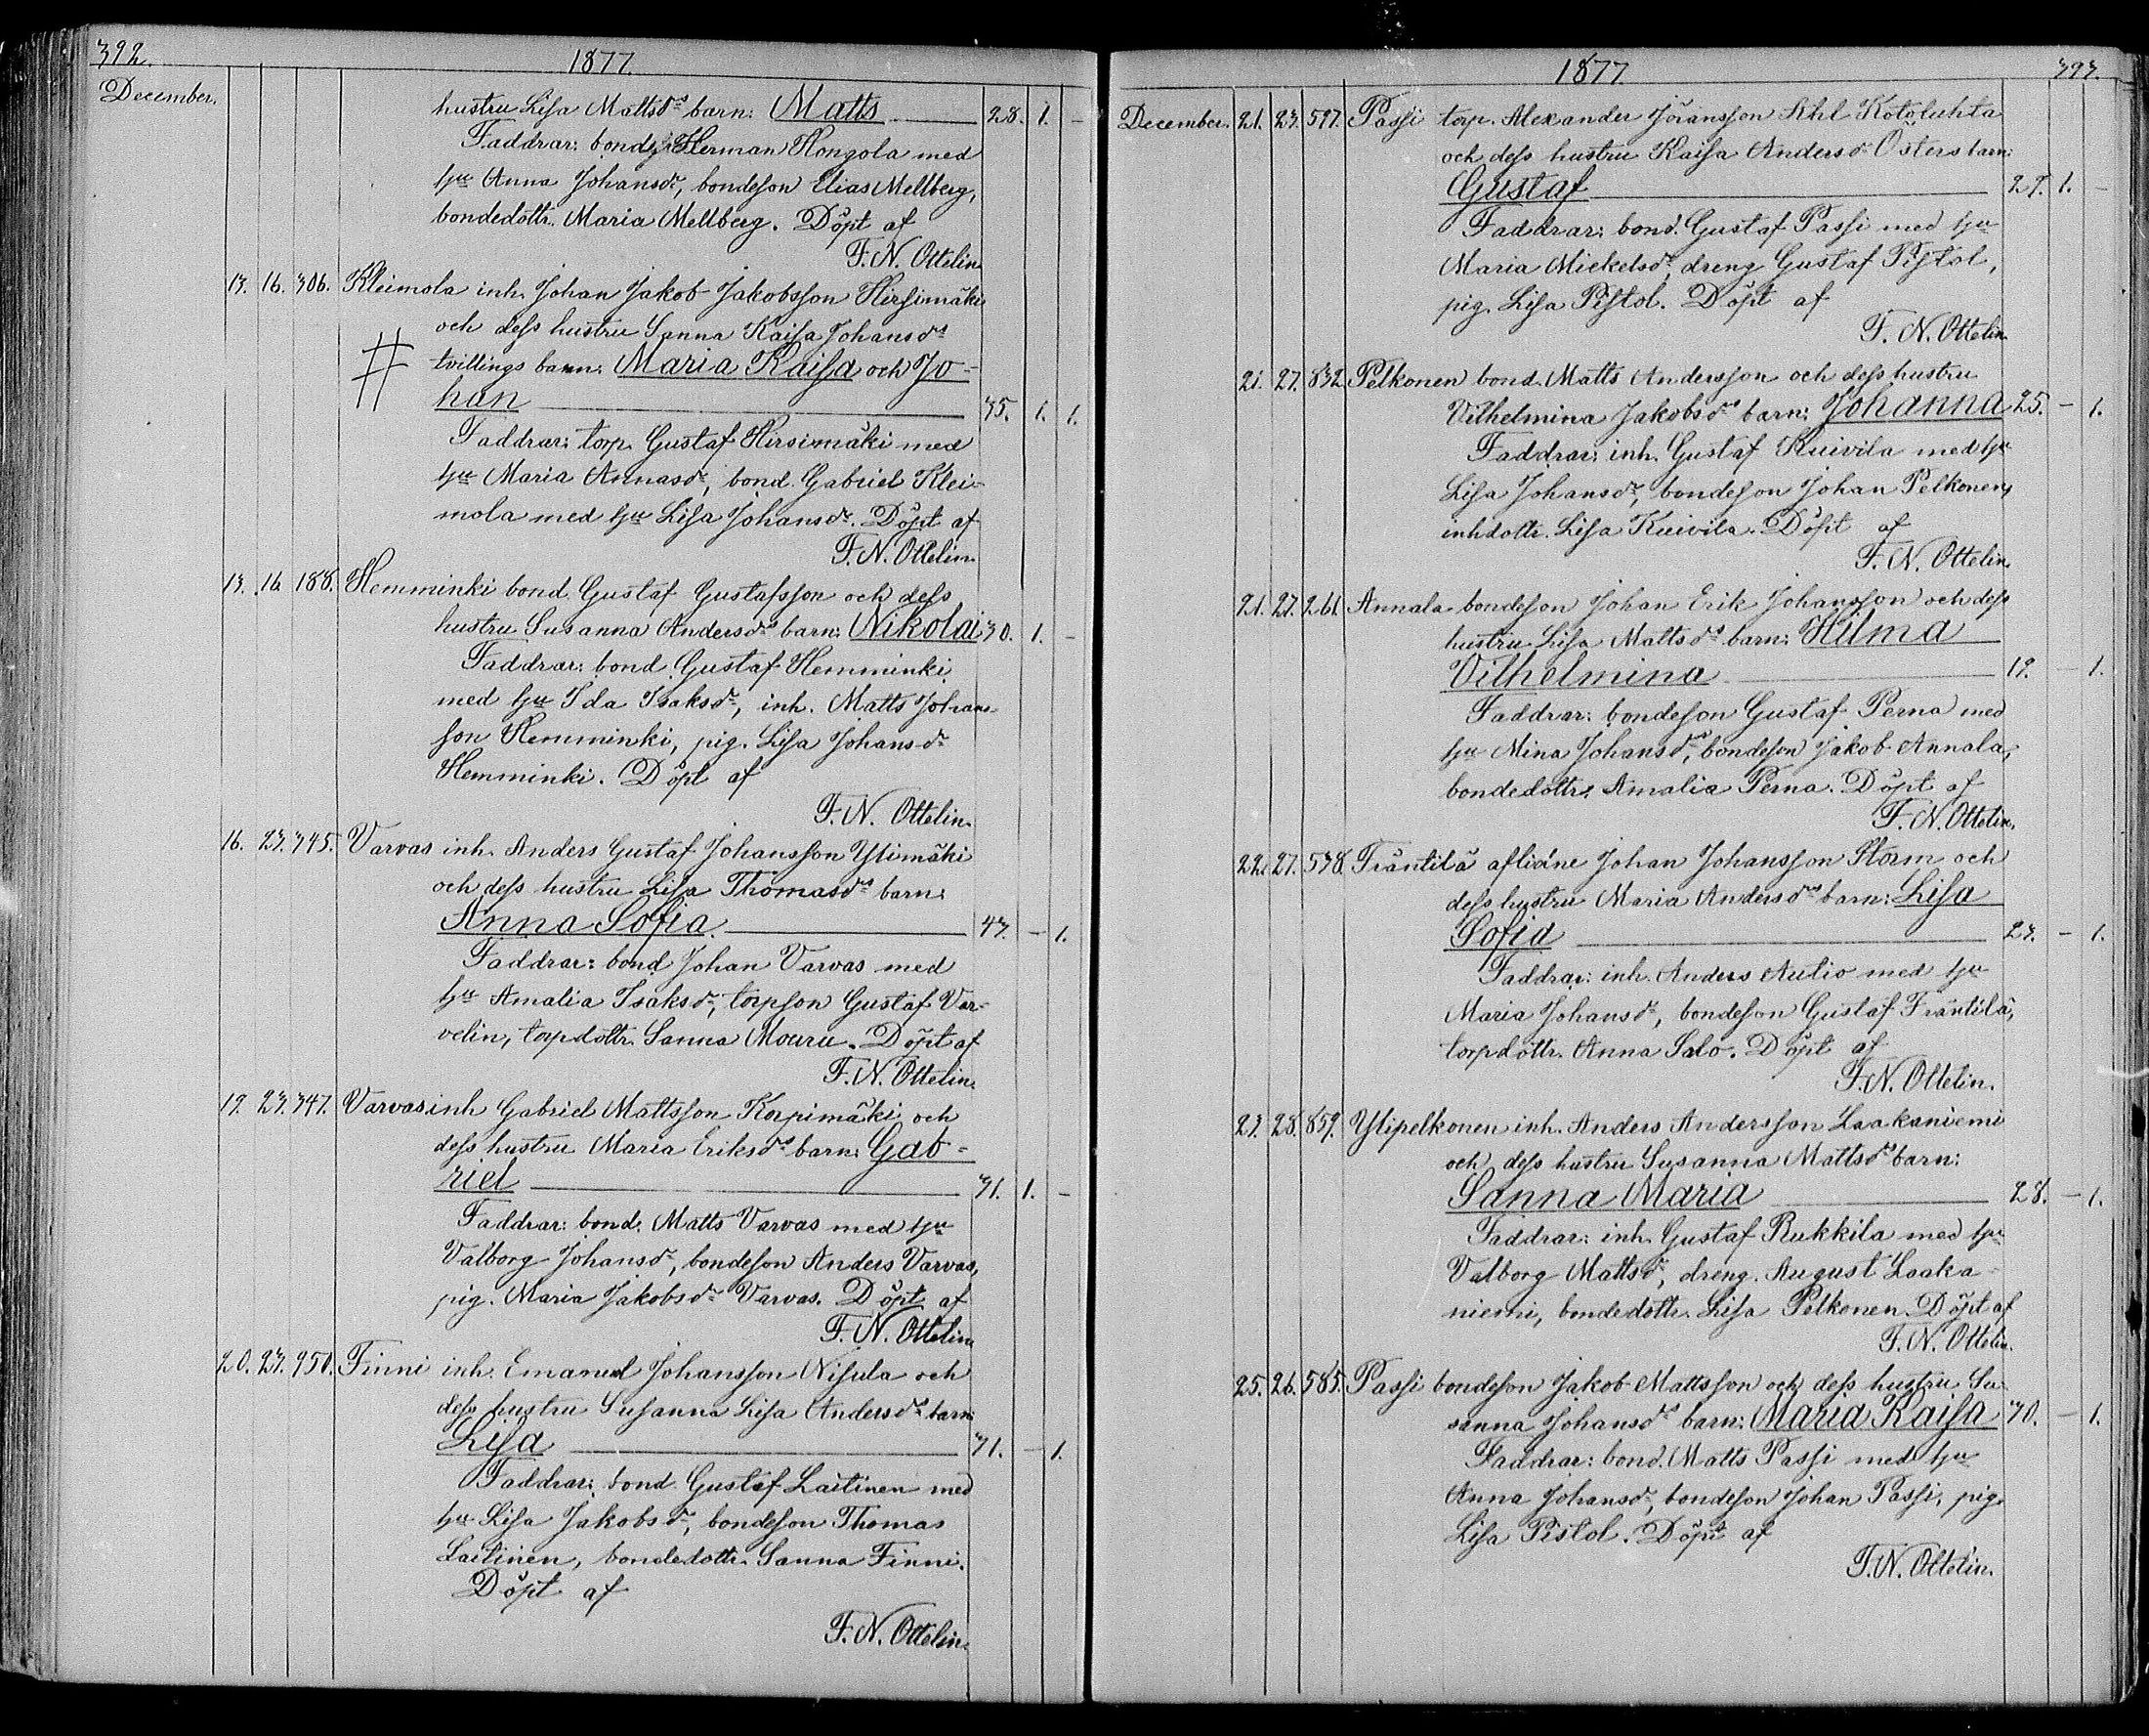 392. 1877.
December. hustru Lisa Mattsdr barn: Matts 28. 1. -
Faddrar: bond. Herman Hongola med
hu Anna Johansdr, bondeson Elias Mellberg,
bondedottr. Maria Mellberg. Döpt af
F. N. Ottelin.
13. 16. 306. Kleimola inh. Johan Jakob Jakobsson Hirsimäki
och dess hustru Sanna Kaisa Johansdr
tvillings barn: Maria Kaisa och Jo-
han 35. 1. 1.
Faddrar: torp. Gustaf Hirsimäki med
hu Maria Annasdr, bond. Gabriel Klei-
mola med hu Lisa Johansdr. Döpt af
F. N. Ottelin.
13. 16. 188. Hemminki bond. Gustaf Gustafsson och dess
hustru Susanna Andersdr barn: Nikolai 30. 1. -
Faddrar: bond. Gustaf Hemminki
med hu Ida Isaksdr, inh. Matts Johans-
son Hemminki, pig. Lisa Johansdr
Hemminki. Döpt af
F. N. Ottelin.
16. 23. 345. Varvas inh. Anders Gustaf Johansson Ylimäki
och dess hustru Lisa Thomasdr barn:
Anna Sofia. 43. - 1.
Faddrar: bond Johan Varvas med
hu Amalia Isaksdr, torpson Gustaf Var-
velin, torpdottr. Sanna Mouru. Döpt af
F. N. Ottelin.
19. 23. 347. Varvas inh Gabriel Mattsson Korpimäki och
dess hustru Maria Eriksdr barn: Gab-
riel 31. 1. -
Faddrar: bond. Matts Varvas med hu
Valborg Johansdr, bondeson Anders Varvas,
pig. Maria Jakobsdr Varvas. Döpt af
F. N. Ottelin.
20. 23. 950. Finni inh. Emanuel Johansson Nisula och
dess hustru Susanna Lisa Andersdr barn:
Lisa 31. - 1.
Faddrar: bond Gustaf Laitinen med
hu Lisa Jakobsdr, bondeson Thomas
Laitinen, bondedottr. Sanna Finni.
Döpt af
F. N. Ottelin.
1877 393.
December. 21. 23. 597. Passi torp. Alexander Jöransson Kotoluhta
och dess hustru Kaisa Andersdr Östers barn:
Gustaf 29. 1. -
Faddrar: bond. Gustaf Passi med hu
Maria Mickelsdr, dreng Gustaf Pistol,
pig. Lisa Pistol. Döpt af
F. N. Ottelin.
21. 27. 832. Pelkonen bond. Matts Andersson och dess hustru
Vilhelmina Jakobsdr barn: Johanna 25. - 1.
Faddrar: inh. Gustaf Kuivila med hu
Lisa Johansdr, bondeson Johan Pelkonen,
inhdottr. Lisa Kuivila. Döpt af
F. N. Ottelin.
21. 27. 261. Annala bondeson Johan Erik Johansson och dess
hustru Lisa Mattsdr barn: Hilma
Vilhelmina 19. - 1.
Faddrar: bondeson Gustaf Perna med
hu Mina Johansdr, bondeson Jakob Annala,
bondedottr. Amalia Perna. Döpt af
F. N. Ottelin.
22. 27. 538. Fräntilä aflidne Johan Johansson Storm och
dess hustru Maria Andersdr barn: Lisa
Sofia 23. - 1.
Faddrar: inh. Anders Autio med hu
Maria Johansdr, bondeson Gustaf Fräntilä,
torpdottr. Anna Salo. Döpt af
F. N. Ottelin.
23. 28. 859. Ylipelkonen inh. Anders Andersson Laakaniemi
och dess hustru Susanna Mattsdr barn:
Sanna Maria 28. - 1.
Faddrar: inh. Gustaf Rukkila med hu
Valborg Mattsdr, dreng. August Laaka-
niemi, bondedottr. Lisa Pelkonen. Döpt af
F. N. Ottelin.
25. 26. 585. Passi bondeson Jakob Mattsson och dess hustru Su-
sanna Johansdr barn: Maria Kaisa 30. - 1.
Faddrar: bond. Matts Passi med hu
Anna Johansdr, bondeson Johan Passi, pig.
Lisa Pistol. Döpt af
F. N. Ottelin.